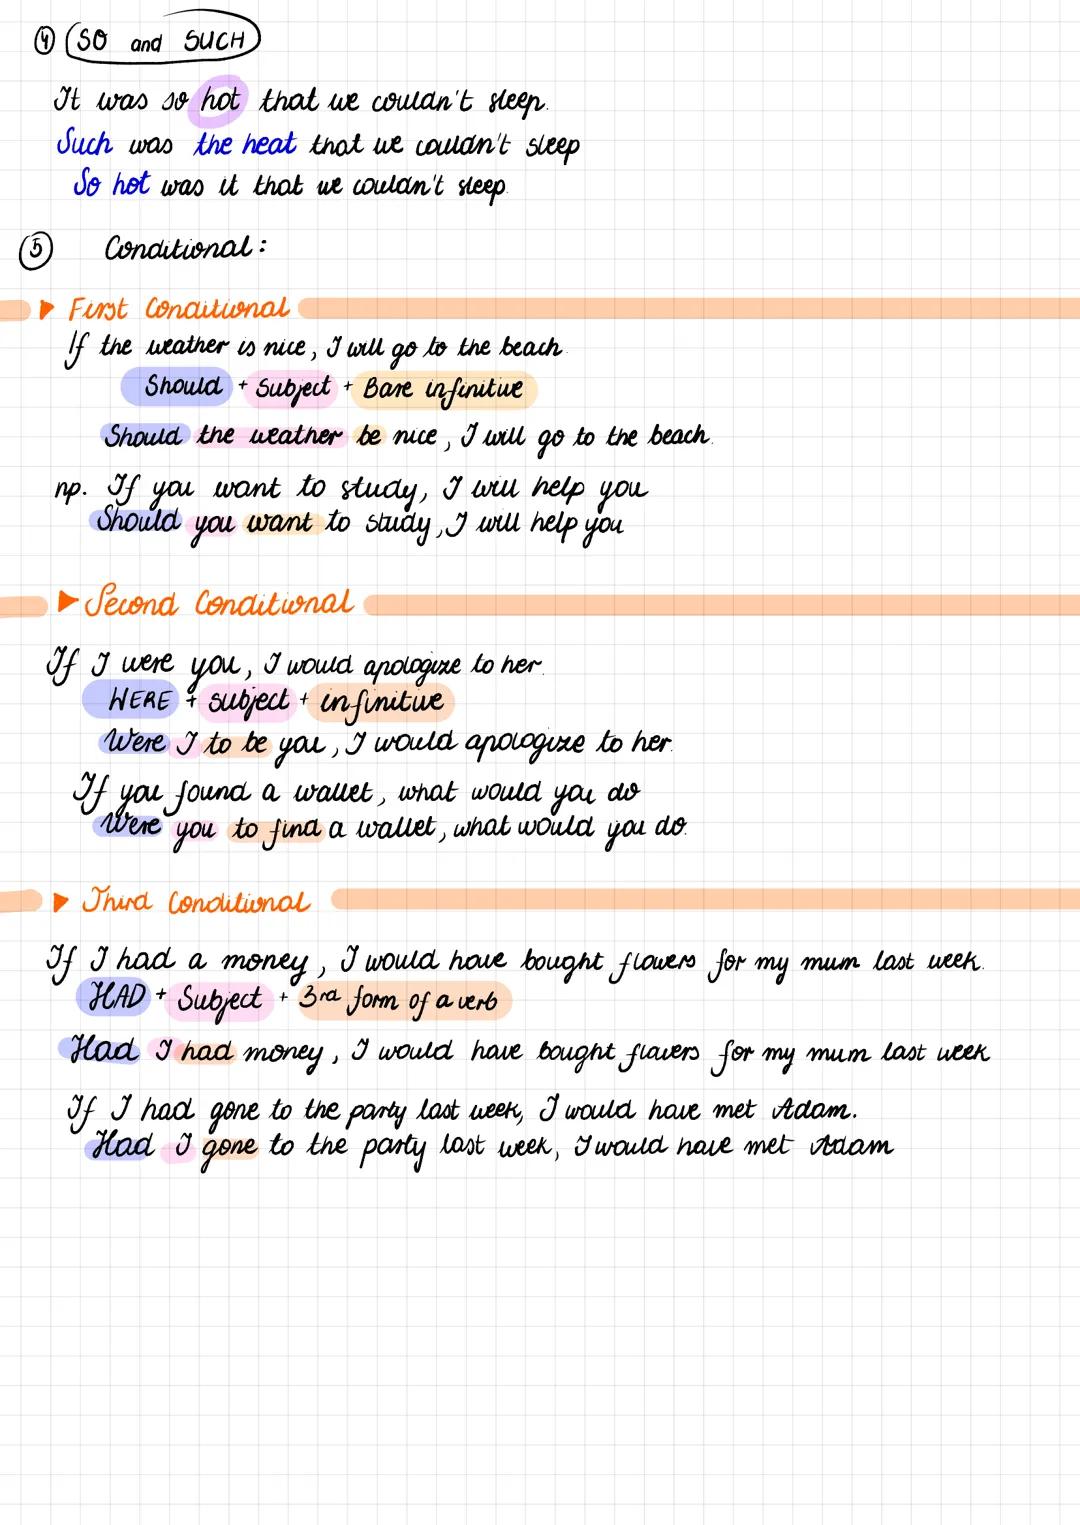 ④ SO and SUCH
It was so hot that we couldn't sleep.
Such was the heat that we couldn't sleep
So hot was it that we couldn't sleep.
⑤ Conditional:
▶ First Conditional
If the weather is nice, I will go to the beach.
Should + Subject + Bare infinitive
Should the weather be nice, I will go to the beach.
np. If you want to study, I will help you
Should you want to study, I will help you
▶ Second Conditional
If I were you, I would apologize to her.
WERE + subject + infinitive
Were I to be you, I would apologize to her.
If you found a wallet, what would you do
Were you to find a wallet, what would you do.
▶ Third Conditional
If I had a money, I would have bought flowers for my mum last week.
HAD + Subject + 3rd form of a verb
Had I had money, I would have bought flavers for my mum last week
If I had gone to the party last week, I would have met Adam.
Had I gone to the party last week, I would have met Adam